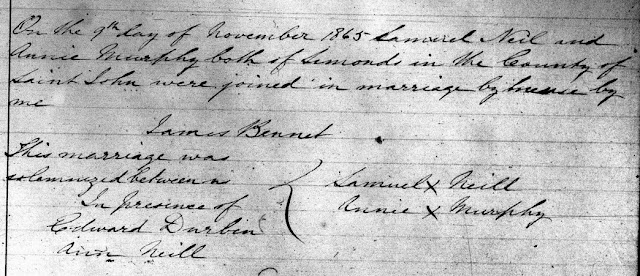 On the 9th day of November 1865 Samuel Neil and
Annie Murphy both of Simonds in the County of
Saint John were joined in marriage by license by
me
James Bennet
This marriage was
solemnized between us
In presence of
Edward Durbin
Ann Neill
Samuel X Neill
Annie X Murphy